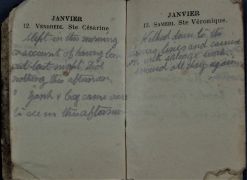 JANVIER
12. VENDREDI. Ste Césarine
I left in this morning
on account of having
out last night. Did
nothing this afternoon
" Gash & Cog came over
to see in this afternoon
JANVIER
13. SAMEDI. Ste Véronique.
Walked down to the
lines and carried
on with salvage work,
around all day again